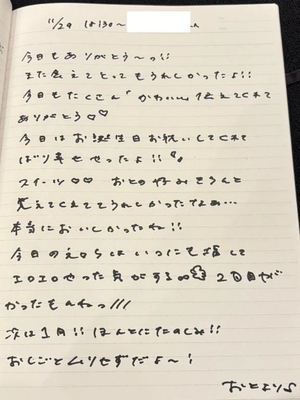 11/29 18:30〜 さん
今日もありがとう〜っ!!
また会えてとってもうれしかったよ!!
今日もたくさん「かわいい」伝えてくれて
ありがとう♡♡
今日はお誕生日お祝いしてくれて
ばり幸せやったよ!!
スイーツ♡♡ おとの好みちゃんと
覚えてくれててうれしかったなぁ…
本当においしかったね!!
今日のえ〇らはいつにも増して
エロエロやった気がする 2回目やば
かったもんねっ///
次は1月!! ほんとにたのしみ!!
おしごとムリせずだよ〜!
おとより♪